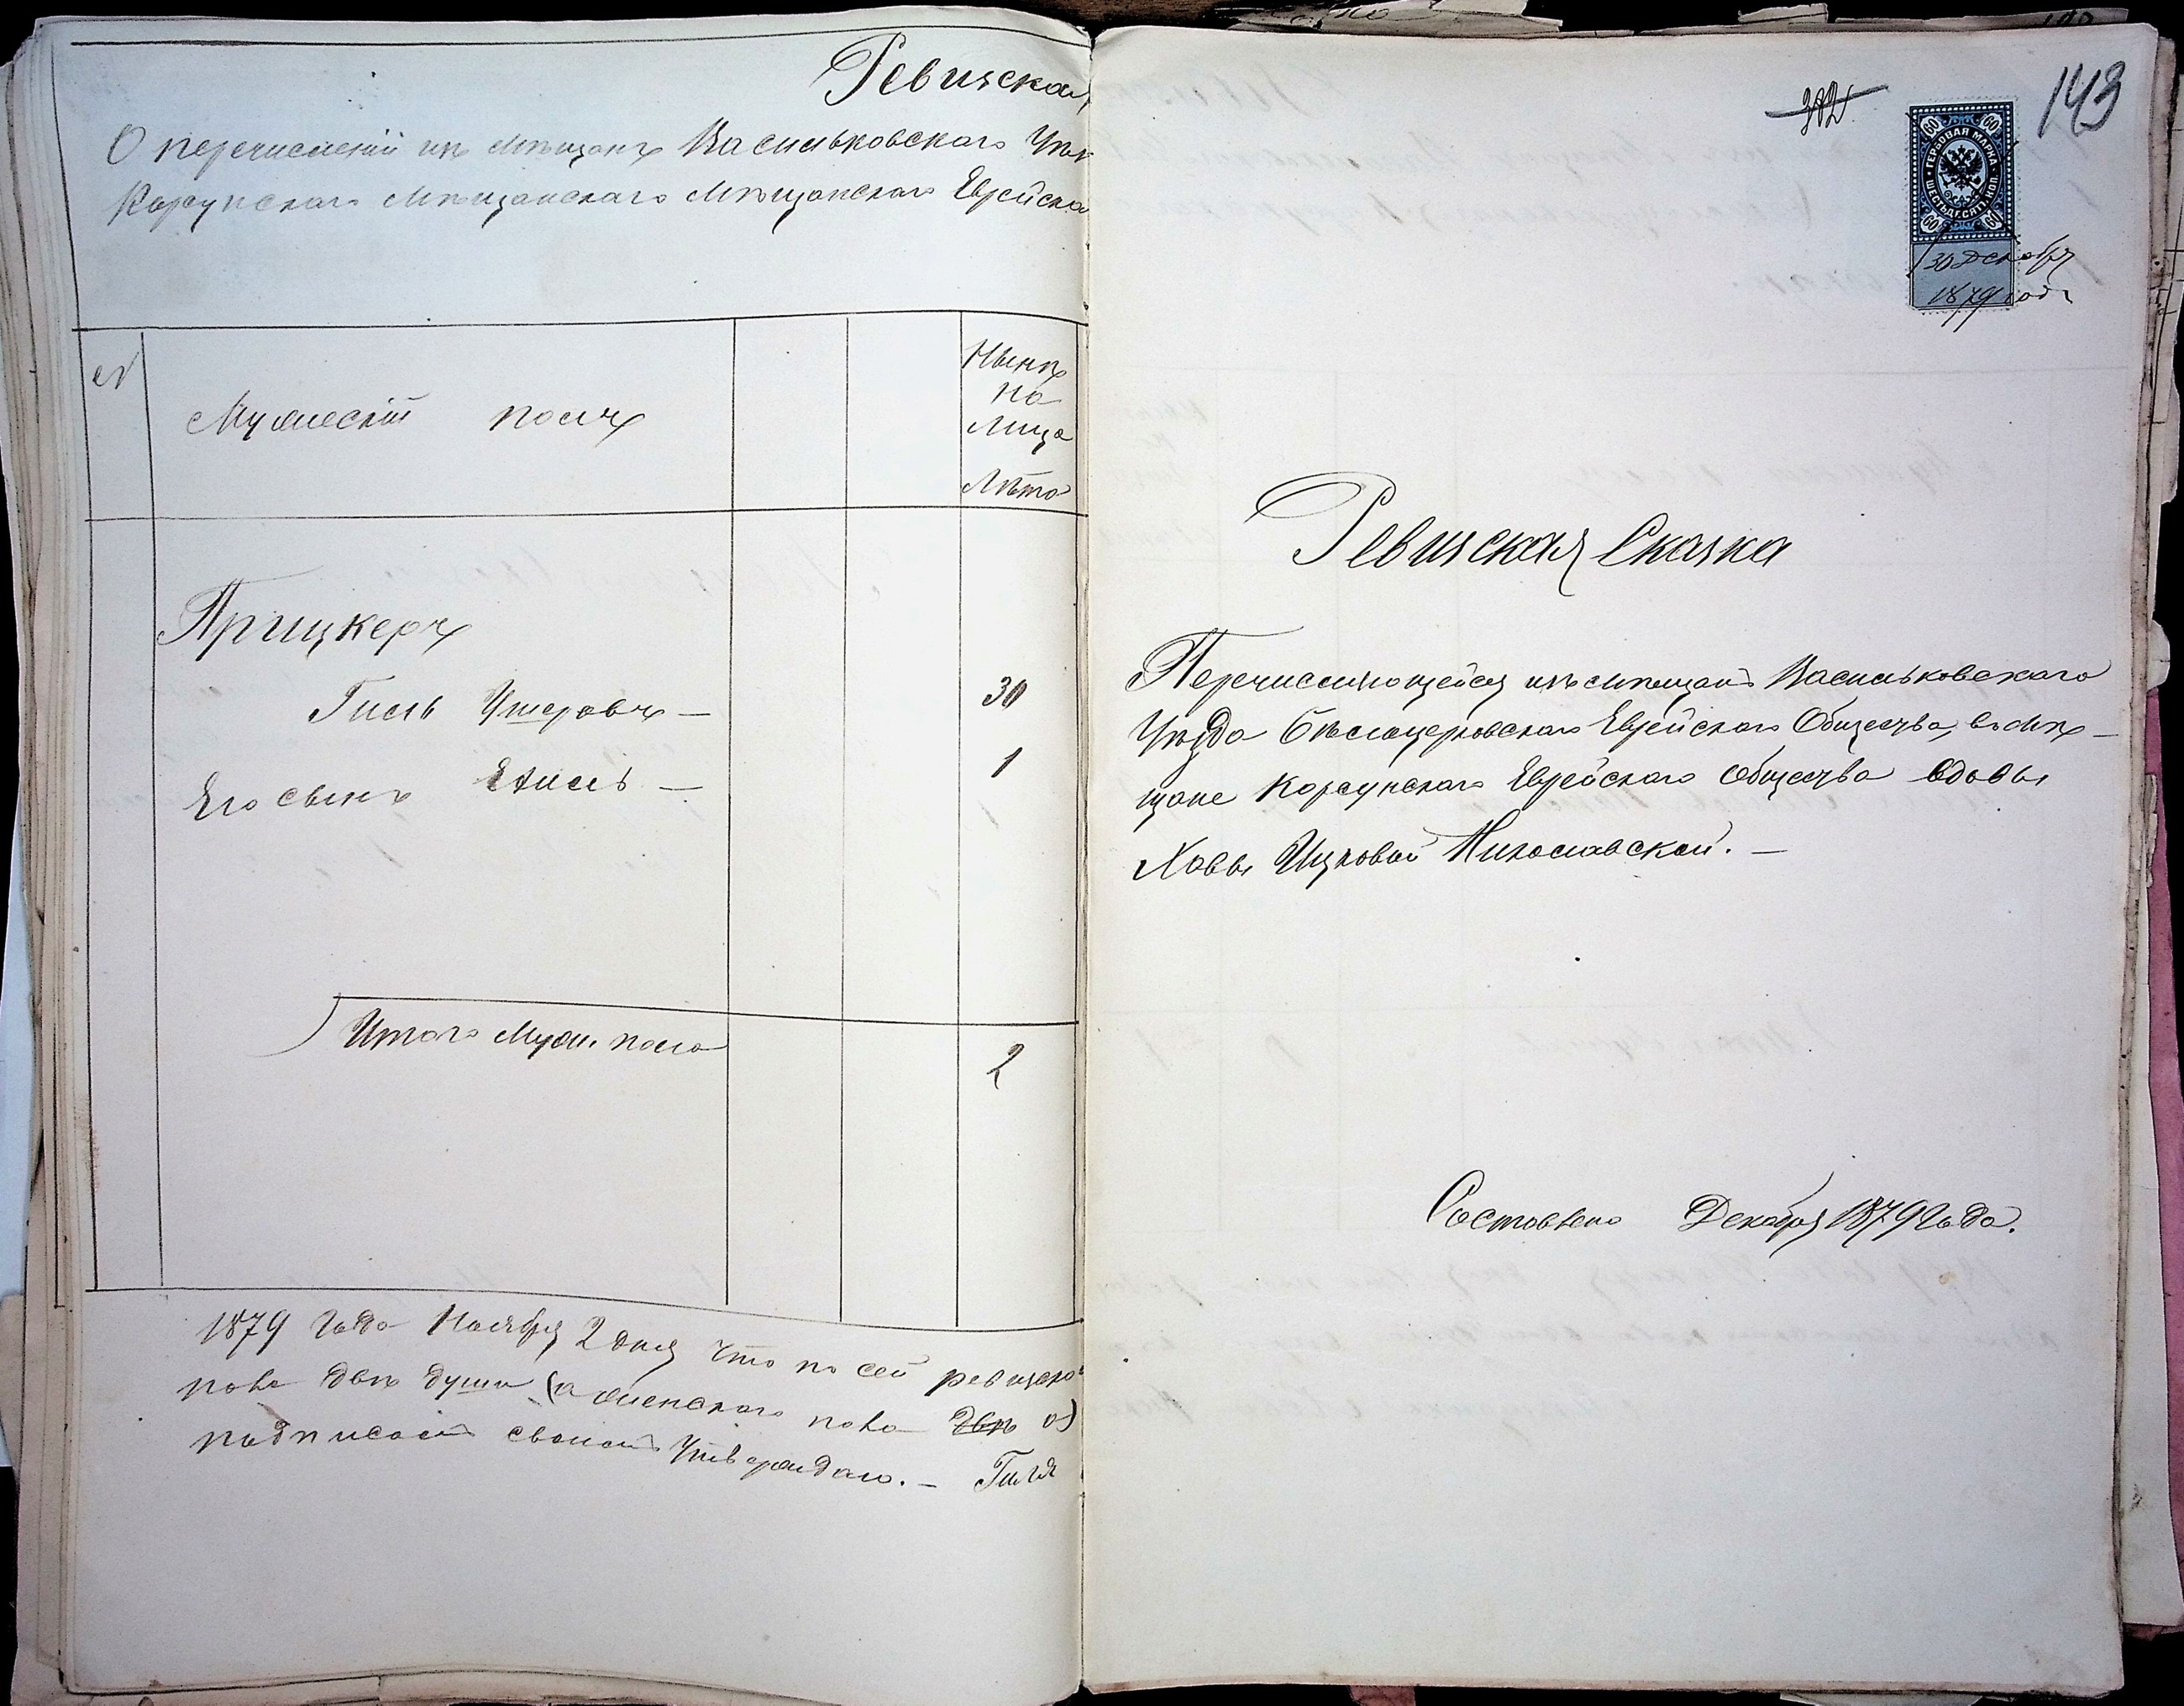 Ревизская
О перечислении изъ мѣщанъ Васильковскаго Уѣз
Корсунскаго Мѣщанскаго Мѣщанскаго Еврейска
№
Мужескій полъ
Нынѣ
на
лицо
Лѣта
Прицкеръ
Гиль Ушеровъ — 30
Его сынъ — 1
Итого Муж. пола 2
1879 года Ноября 2 дня Что по сей ревизско
пола двѣ души (а женскаго пола двѣ 0)
подписомъ своимъ Утверждаю. — Гиля
302
143
ГЕРБОВАЯ МАРКА
ШЕСТЬДЕСЯТЪ КОП.
60 60
60 60
30 Декабря
1879 года
Ревизская Сказка
Перечисляющейся изъ мѣщанъ Васильковскаго
Уѣзда Бѣлоцерковскаго Еврейскаго Общества, въ мѣ-
щане Корсунскаго Еврейскаго Общества вдовы
Хавы Ицковой. —
Составлено Декабря 1879 года.